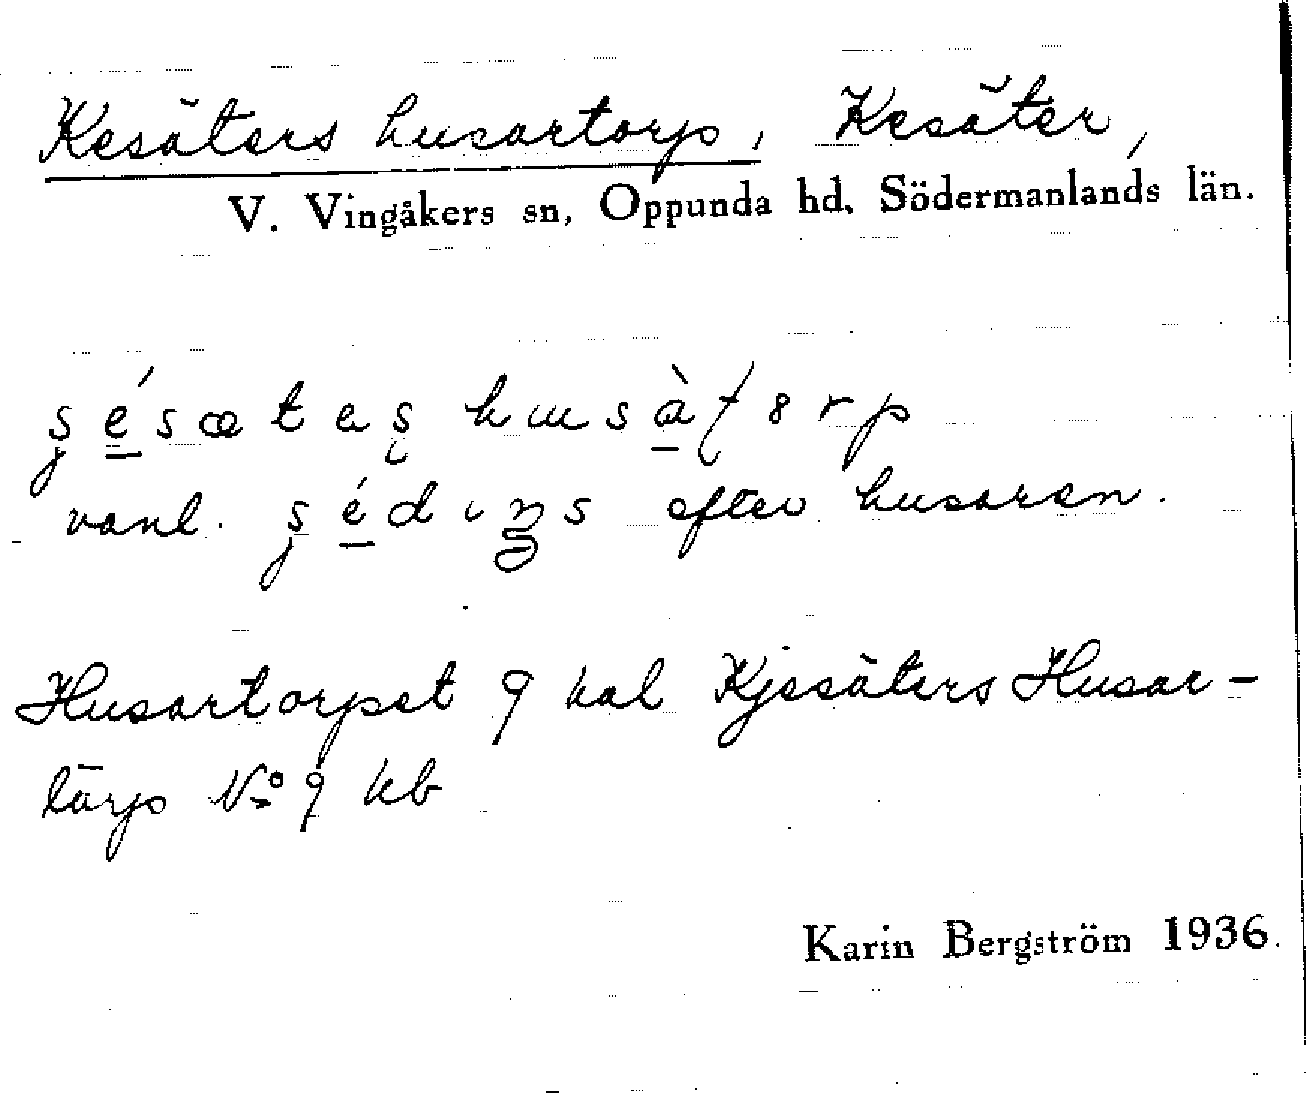 Kesäters husartorp, Kesäter,
V. Vingåkers sn, Oppunda hd, Södermanlands län.
vanl. efter husaren.
Husartorpet 9 kal Kjesäters Husar-
tårp No 9 kb
Karin Bergström 1936.